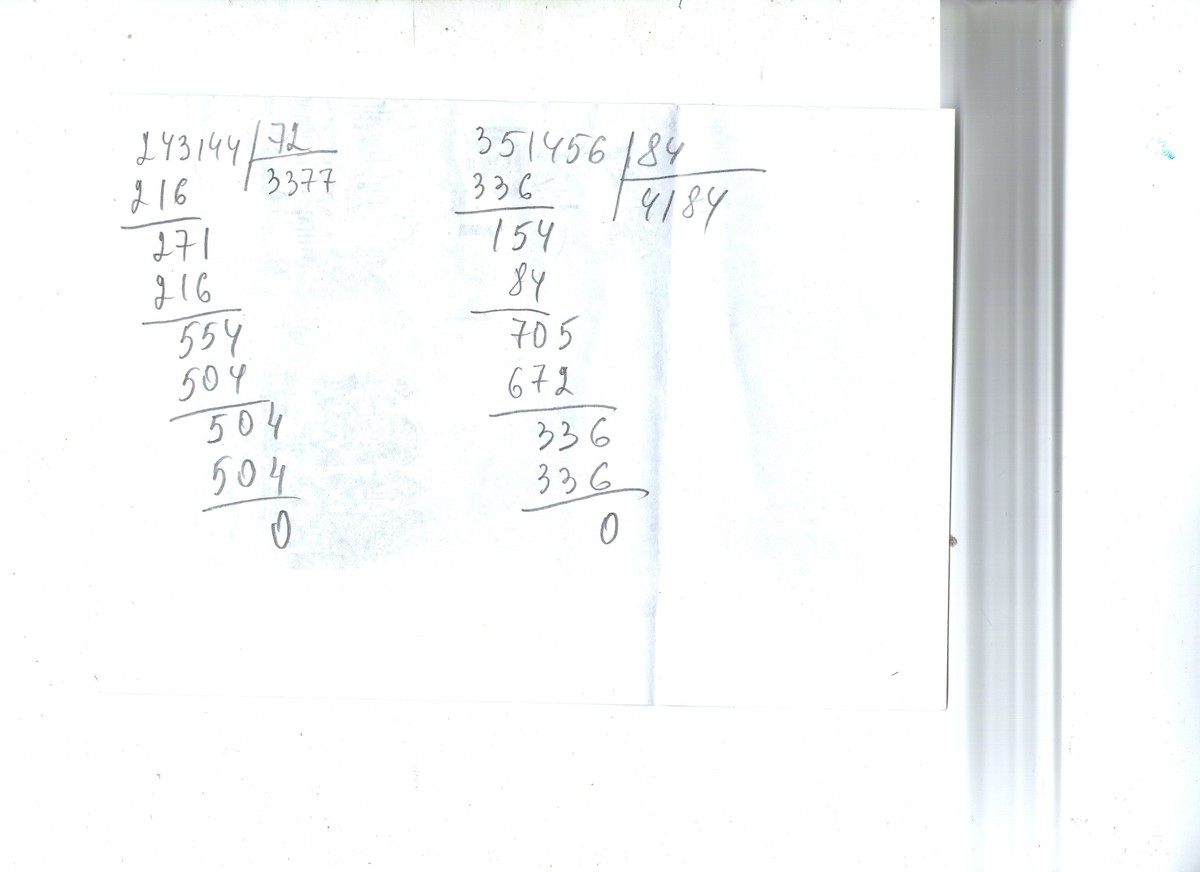 243144 72
216 3377
271
216
554
504
504
504
0
351456 84
336 4184
154
84
705
672
336
336
0